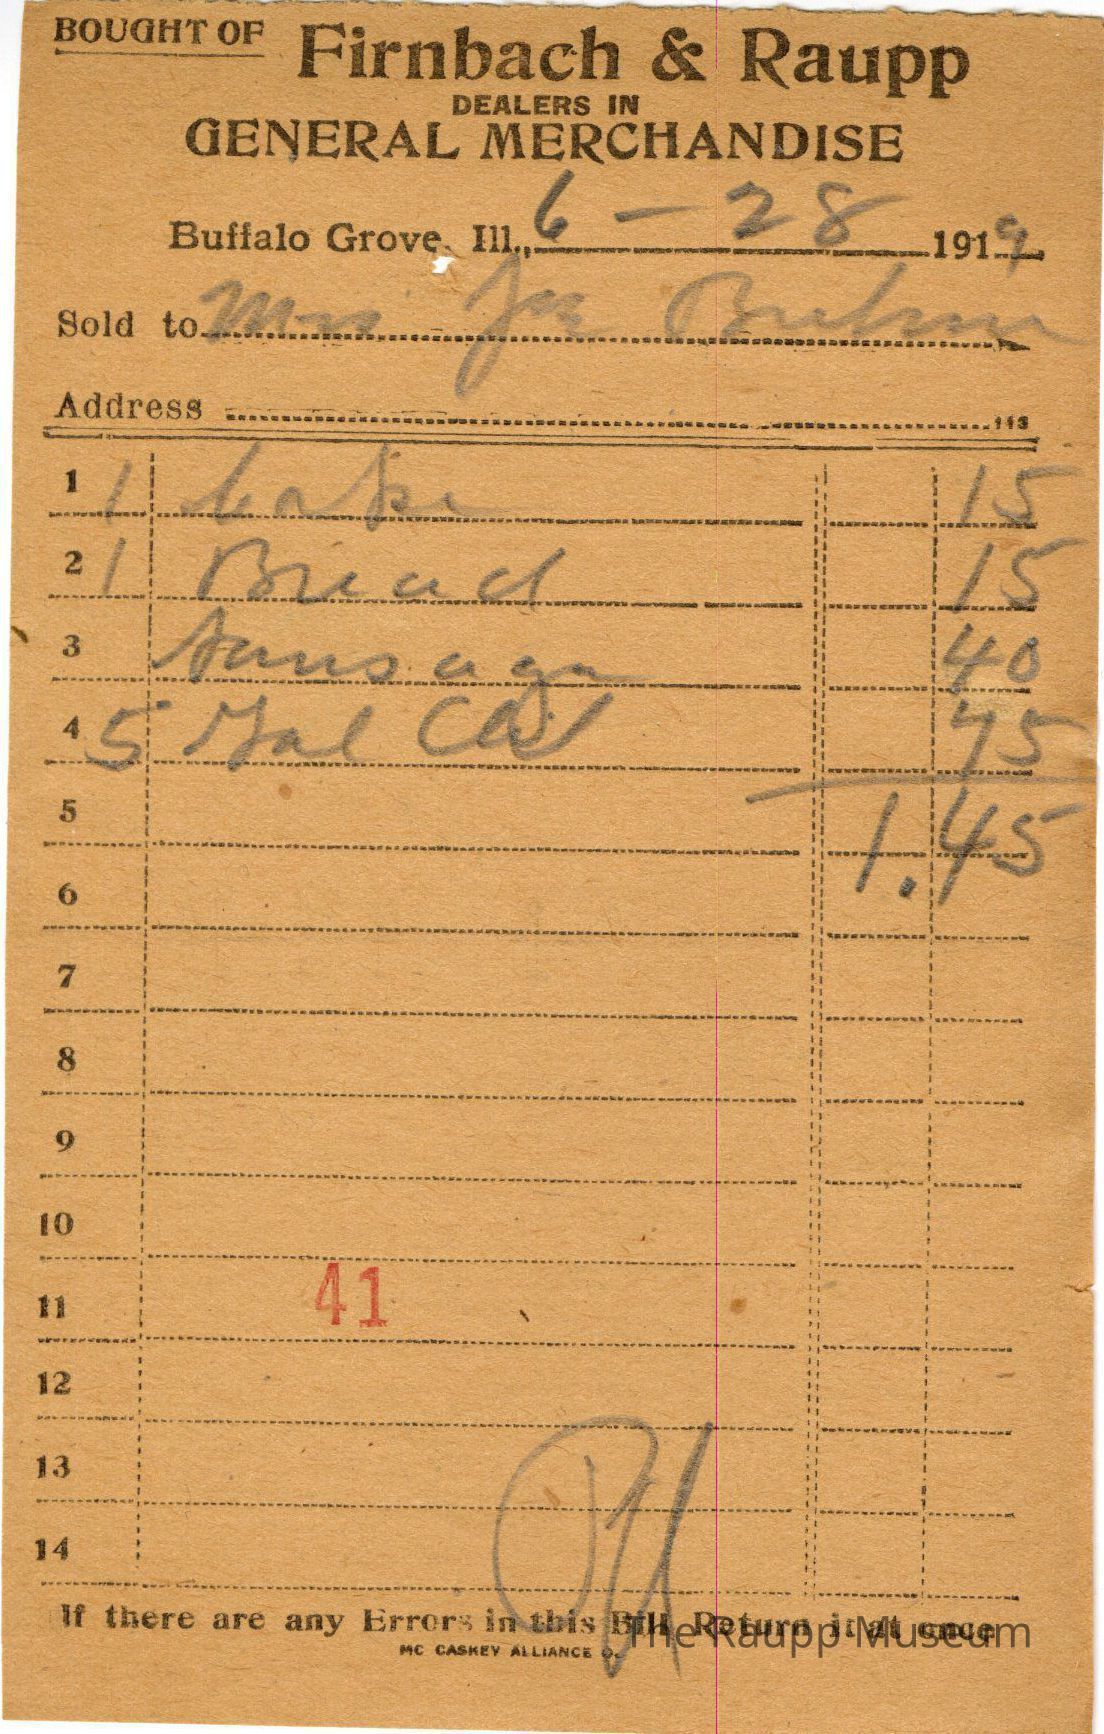 BOUGHT OF Firnbach & Raupp
DEALERS IN
GENERAL MERCHANDISE
Buffalo Grove, Ill., 6 - 28 1919
Sold to Mrs
Address
113
1 1 Cake 15
2 1 Bread 15
3 Sausage 40
4 5 Gal 75
5 1.45
6
7
8
9
10
41
11
12
13
14
If there are any Errors in this Bill Return it at once
The Raupp Museum
MC CASKEY ALLIANCE O.